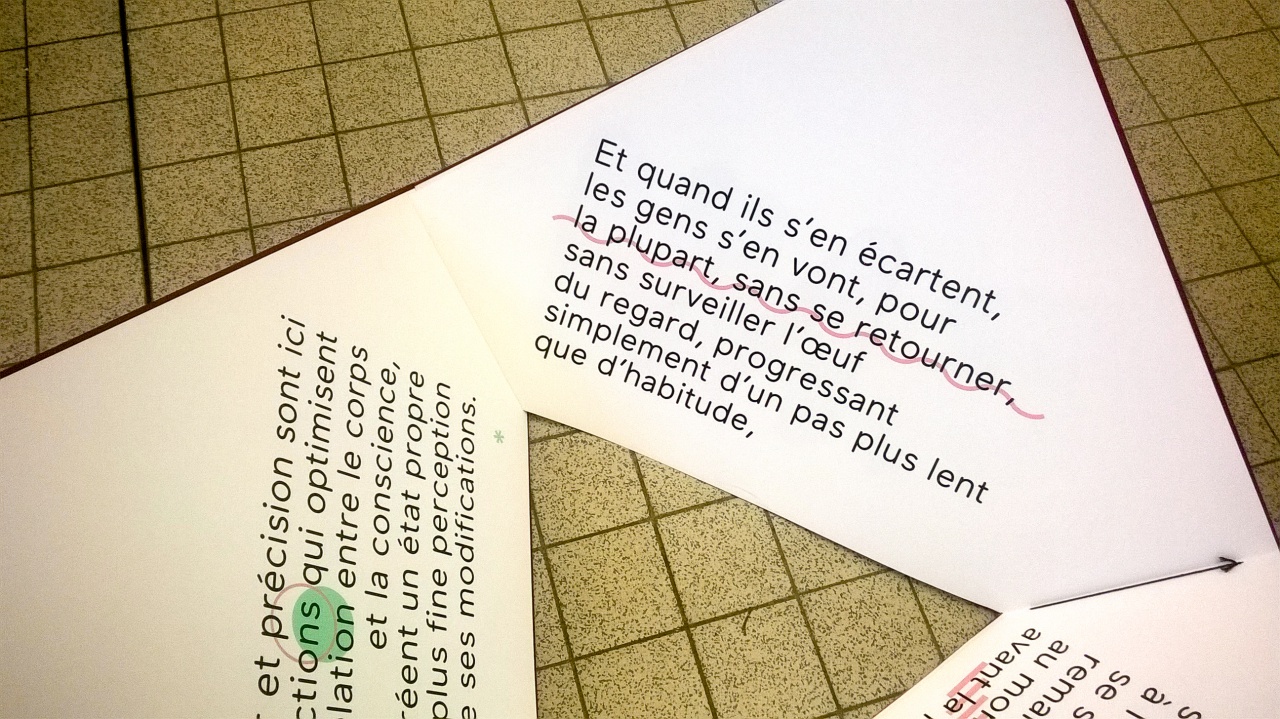 Et quand ils s'en écartent,
les gens s'en vont, pour
la plupart, sans se retourner,
sans surveiller l'œuf
du regard, progressant
simplement d'un pas plus lent
que d'habitude,
et précision sont ici
qui optimisent
entre le corps
et la conscience,
un état propre
plus fine perception
ses modifications.
*
avant la
au
se